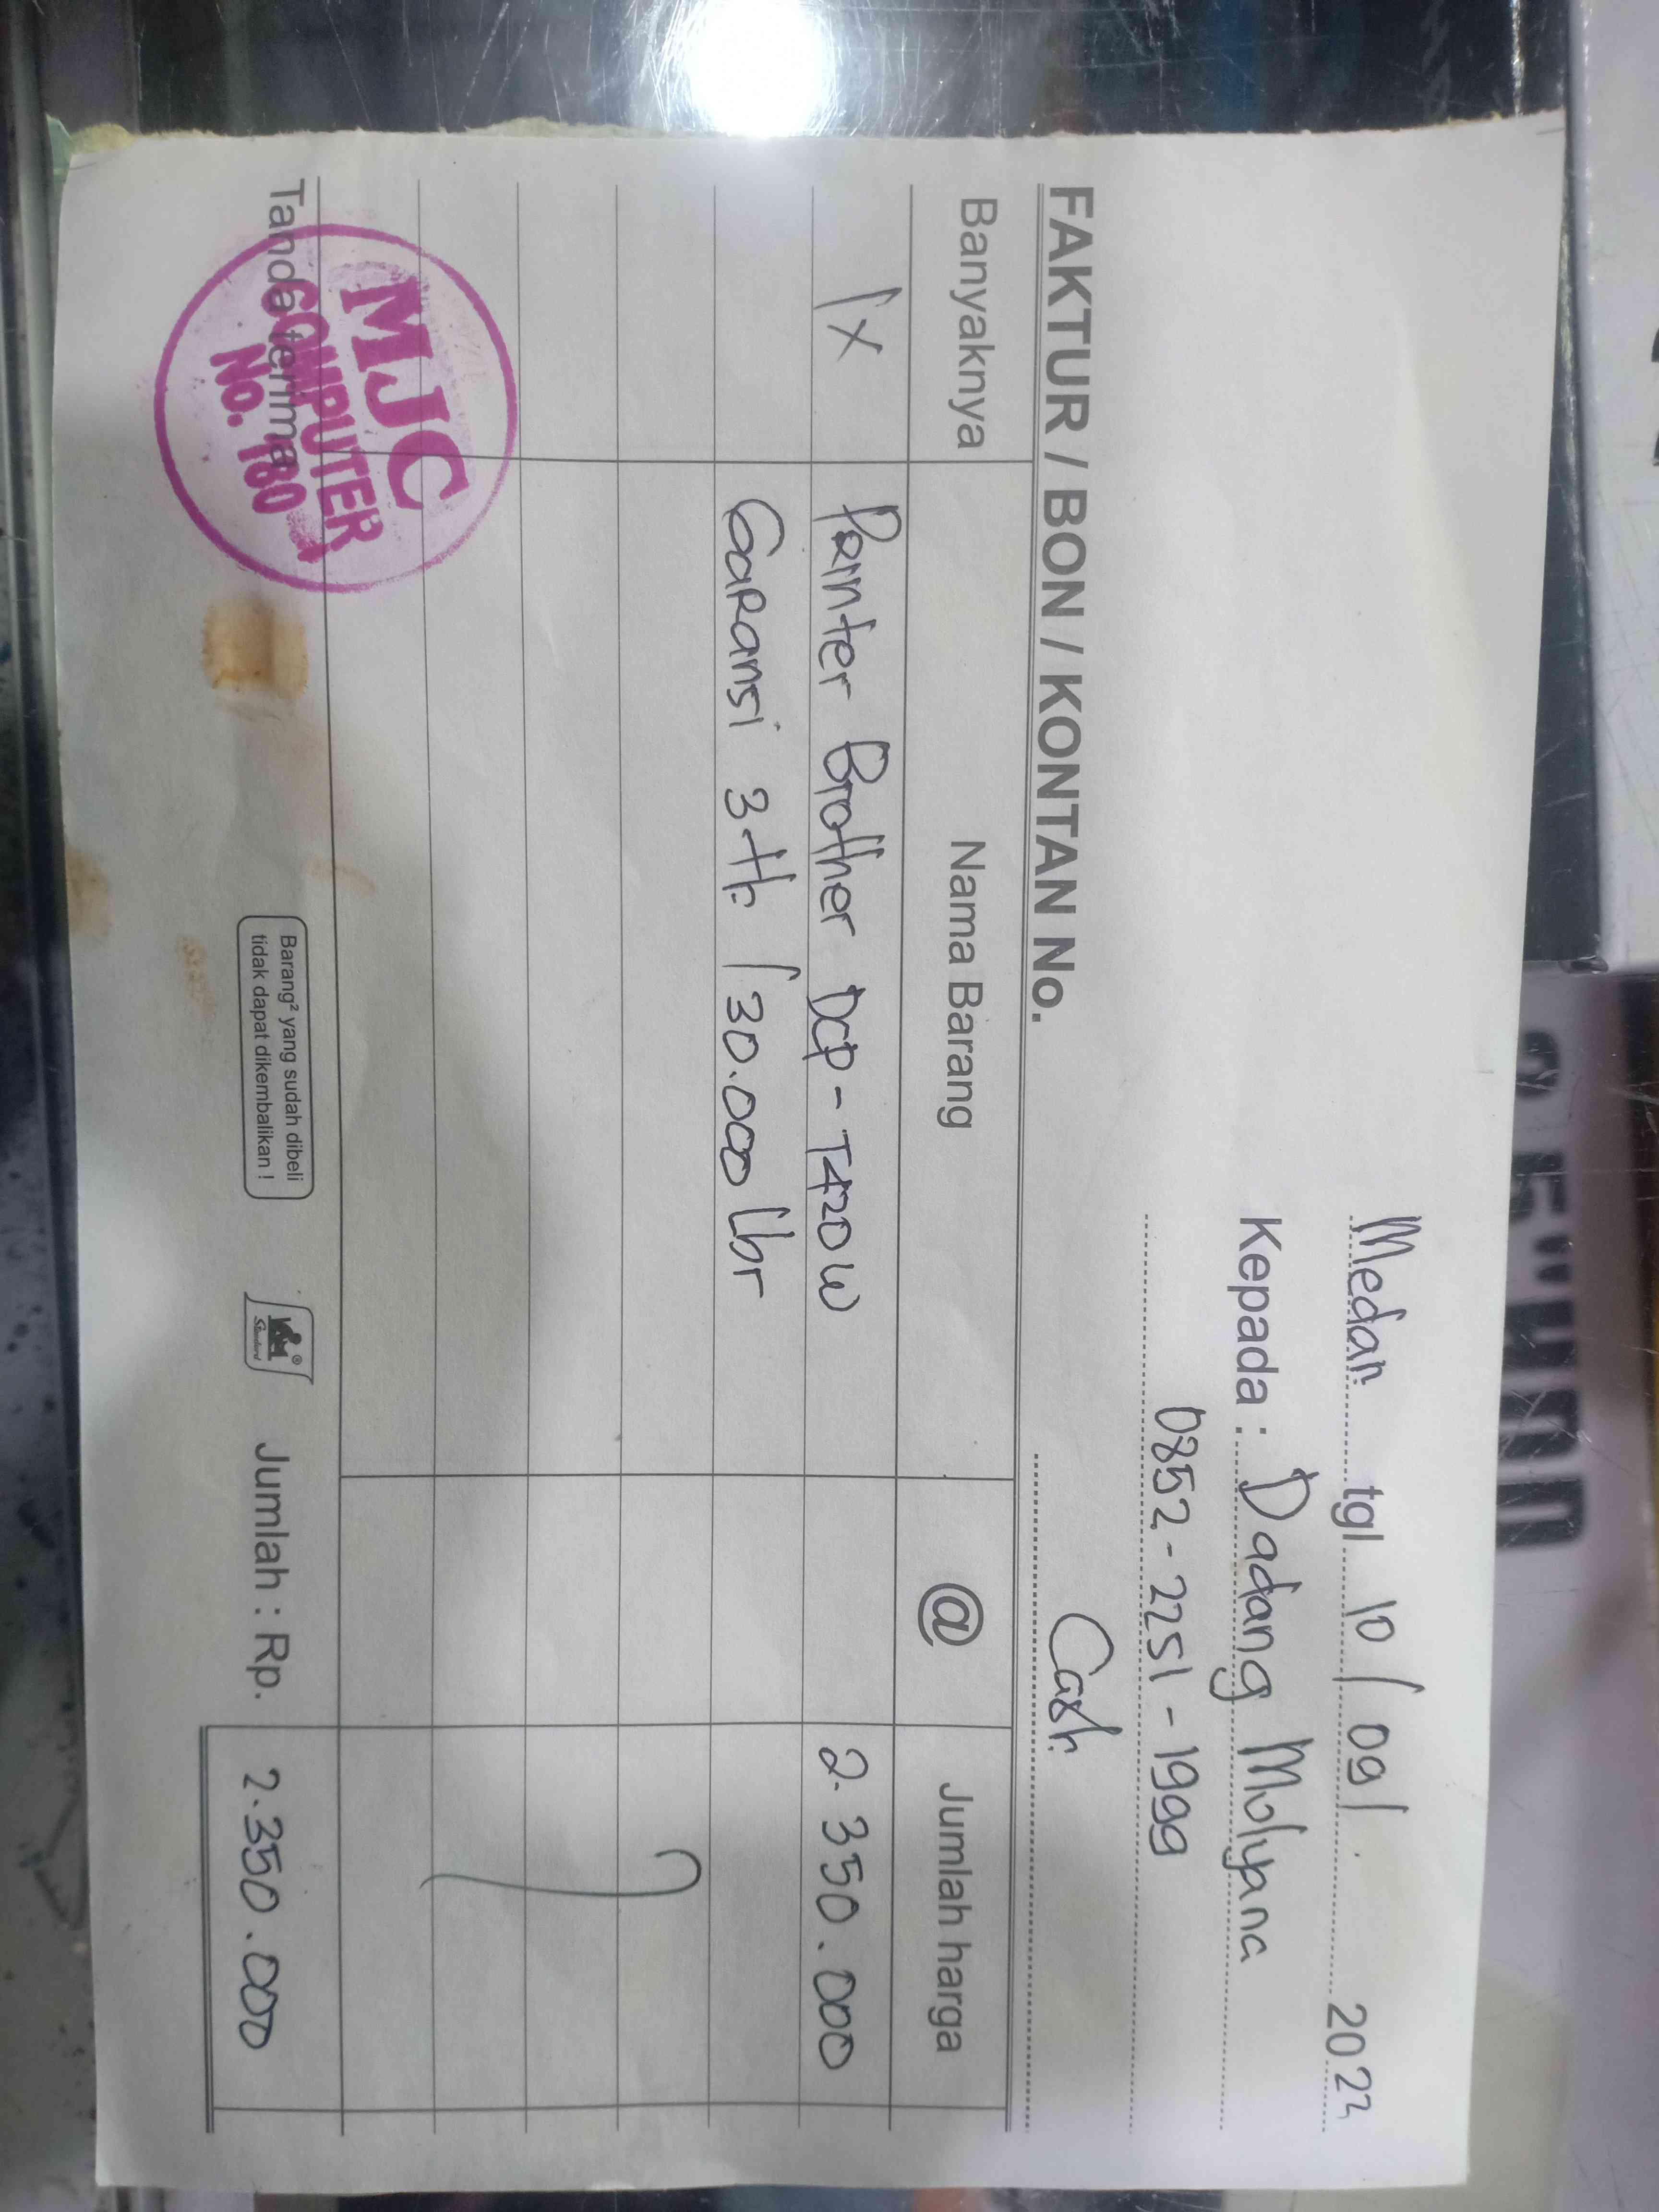 Medan tgl 10/09/ 2022
Kepada : Dadang Molyana
0852-2251-1999
FAKTUR / BON / KONTAN No. Cash
Banyaknya Nama Barang @ Jumlah harga
1x Printer Brother DCP-T420W 2.350.000
Garansi 3 th / 30.000 lbr
MJC
COMPUTER
No. 180
Tanda terima
Barang² yang sudah dibeli
tidak dapat dikembalikan !
Standard
Jumlah : Rp. 2.350.000